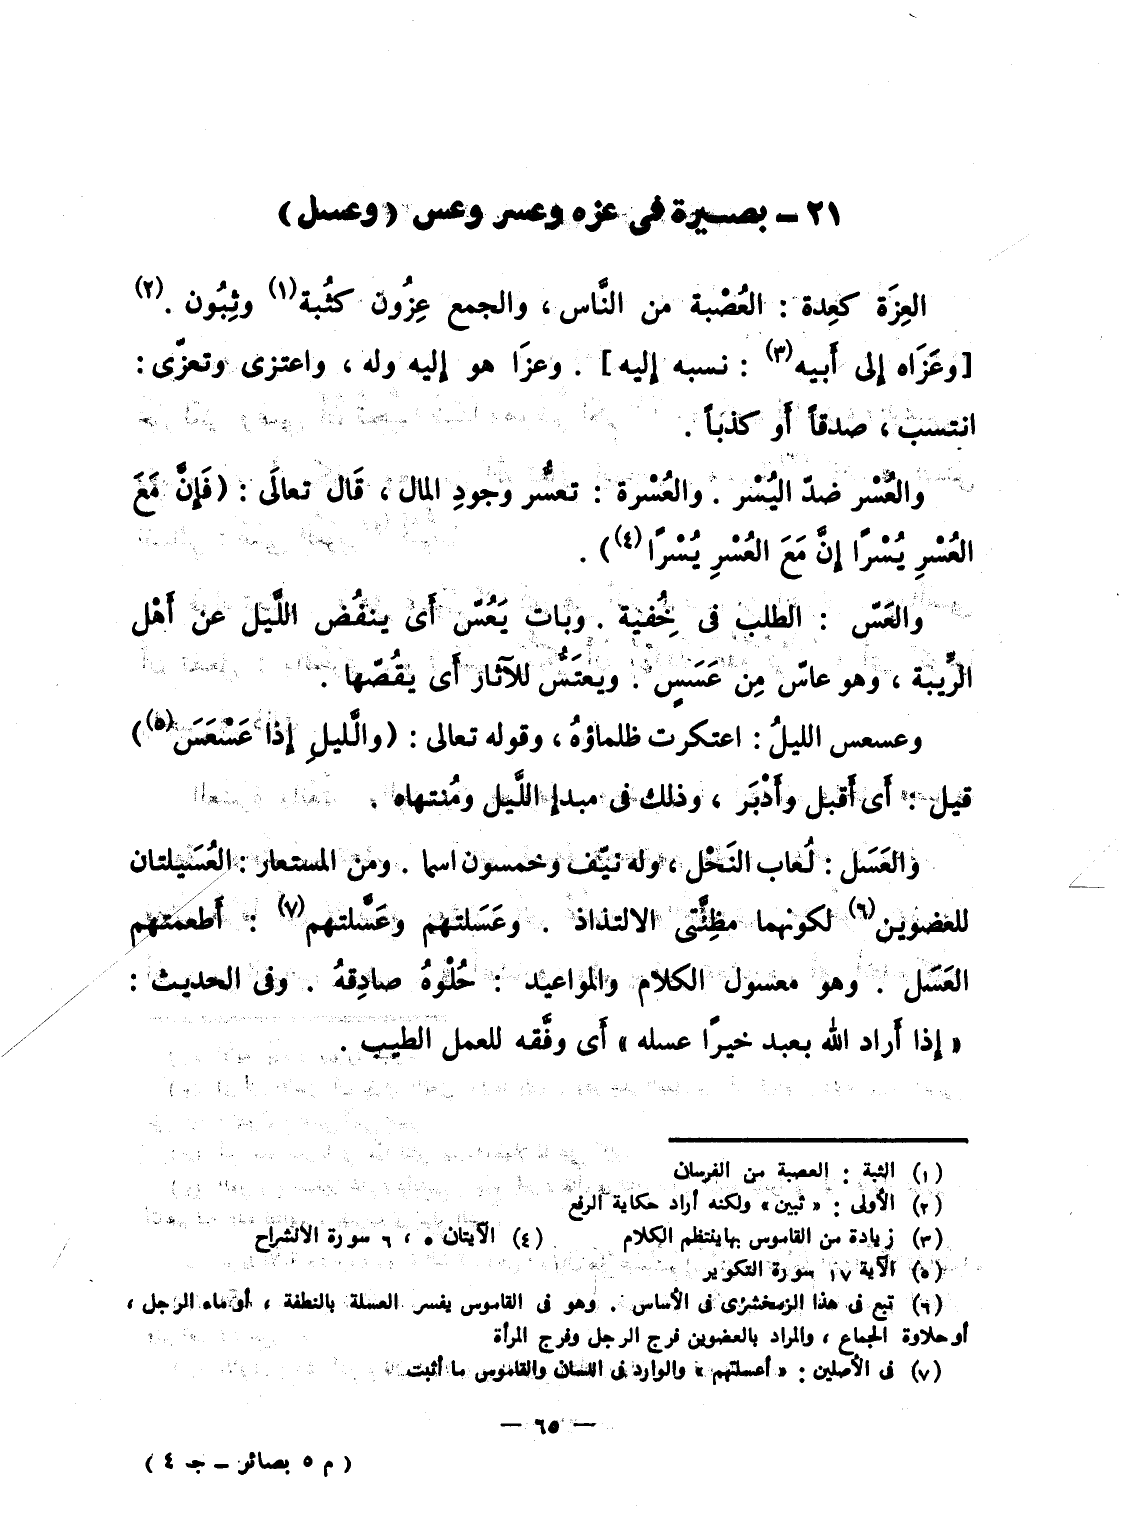 ٢١ ـ بصيرة فى عزه وعسر وعس (وعسل)
العِزَة كعِدة : العُصْبة من النَّاس ، والجمع عِزُون كثُبة(١) وثِبُون .(٢)
[وعَزَاه إلى أَبيه(٣) : نسبه إليه] . وعزَا هو إليه وله ، واعتزى وتعزّى :
انتسب ، صدقاً أَو كذباً .
والعُسْر ضدّ اليُسْر . والعُسْرة : تعسُّر وجودِ المال ، قَال تعالَى : (فَإِنَّ مَعَ
العُسْرِ يُسْرًا إنَّ مَعَ العُسْرِ يُسْرًا(٤)) .
والعَسّ : الطلب فى خُِفية . وبات يَعُسّ أَى ينفُض اللَّيل عن أَهْل
الرِّيبة ، وهو عاسّ مِن عَسَسٍ . ويعتَسُّ للآثار أَى يقُصّها .
وعسعس الليلُ : اعتكرت ظلماؤهُ ، وقوله تعالى : (والَّليلِ إذا عَسْعَسَ(٥))
قيل : أَى أَقبل وأَدْبَر ، وذلك فى مبدإ اللَّيل ومُنتهاه .
والعَسَل : لُعاب النَحْل ، وله نيّف وخمسون اسما . ومن المستعار : العُسَيلتان
للعضوين(٦) لكونهما مظِنَّتى الالتذاذ . وعَسَلتهم وعَسَّلتهم(٧) : أَطعمتهم
العَسَل . وهو معسول الكلام والمواعيد : حُلْوهُ صادِقهُ . وفى الحديث :
« إذا أَراد الله بعبد خيرًا عسله » أَى وفَّقه للعمل الطيب .
(١) الثبة : العصبة من الفرسان
(٢) الأولى : « ثبين » ولكنه أراد حكاية الرفع
(٣) زيادة من القاموس بها ينتظم الكلام (٤) الآيتان ٥ ، ٦ سورة الانشراح
(٥) الآية ١٧ سورة التكوير
(٦) تبع فى هذا الزمخشرى فى الأساس . وهو فى القاموس يفسر العسلة بالنطفة ، أو ماء الرجل ،
أو حلاوة الجماع ، والمراد بالعضوين فرج الرجل وفرج المرأة
(٧) فى الأصلين : « أعسلتهم » والوارد فى اللسان والقاموس ما أثبت
— ٦٥ —
( م ٥ بصائر ـ جـ ٤ )